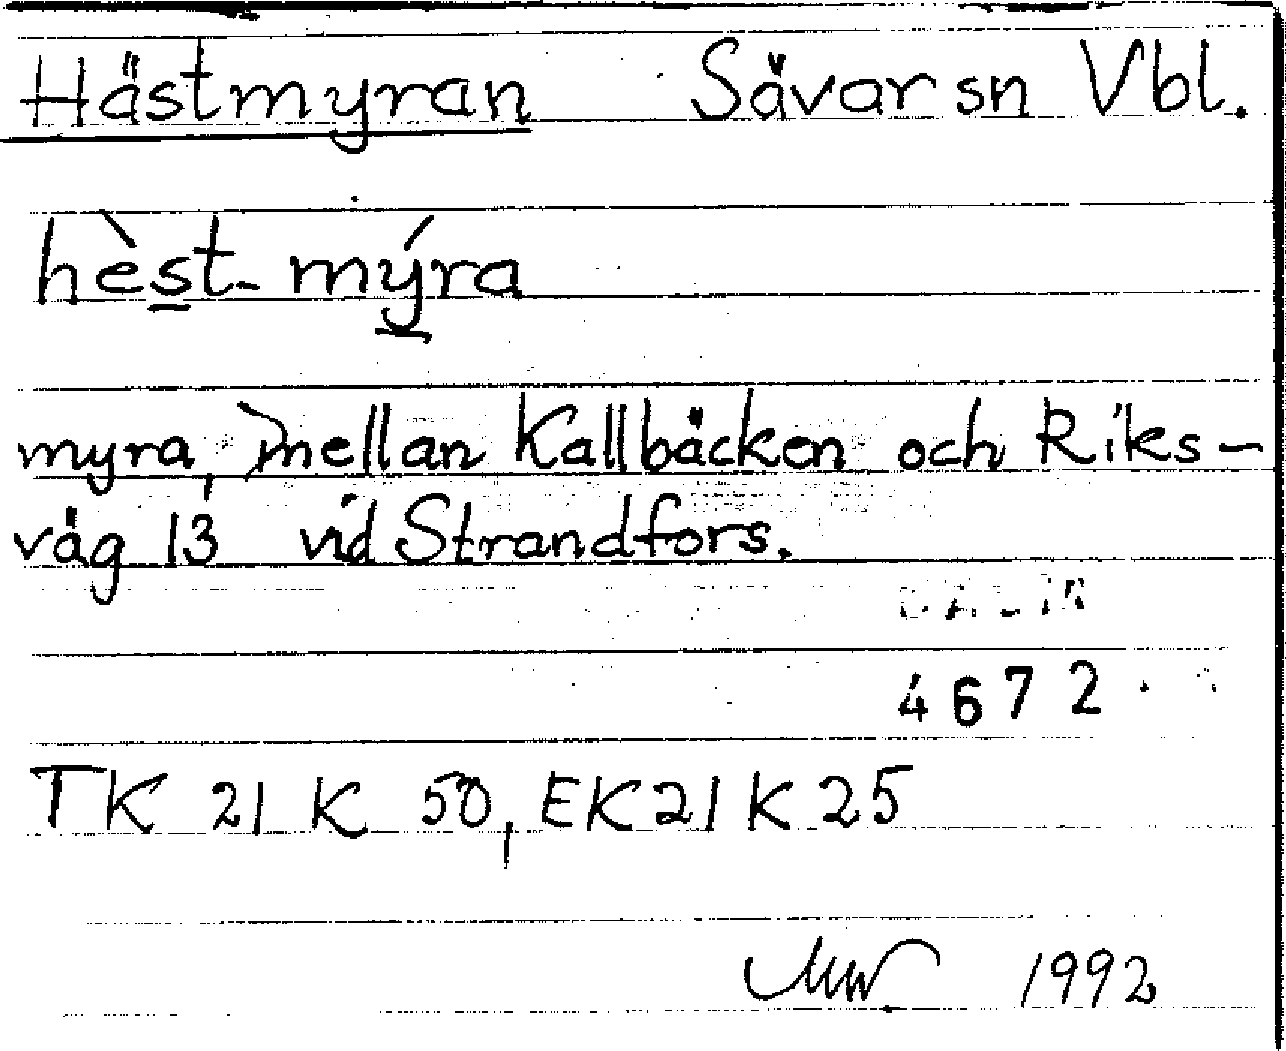 Hästmyran Sävar sn Vbl.
hèst-mýra
myra, mellan Kallbäcken och Riks-
väg 13 vid Strandfors.
4672
TK 21 K 50, EK 21 K 25
MW 1992